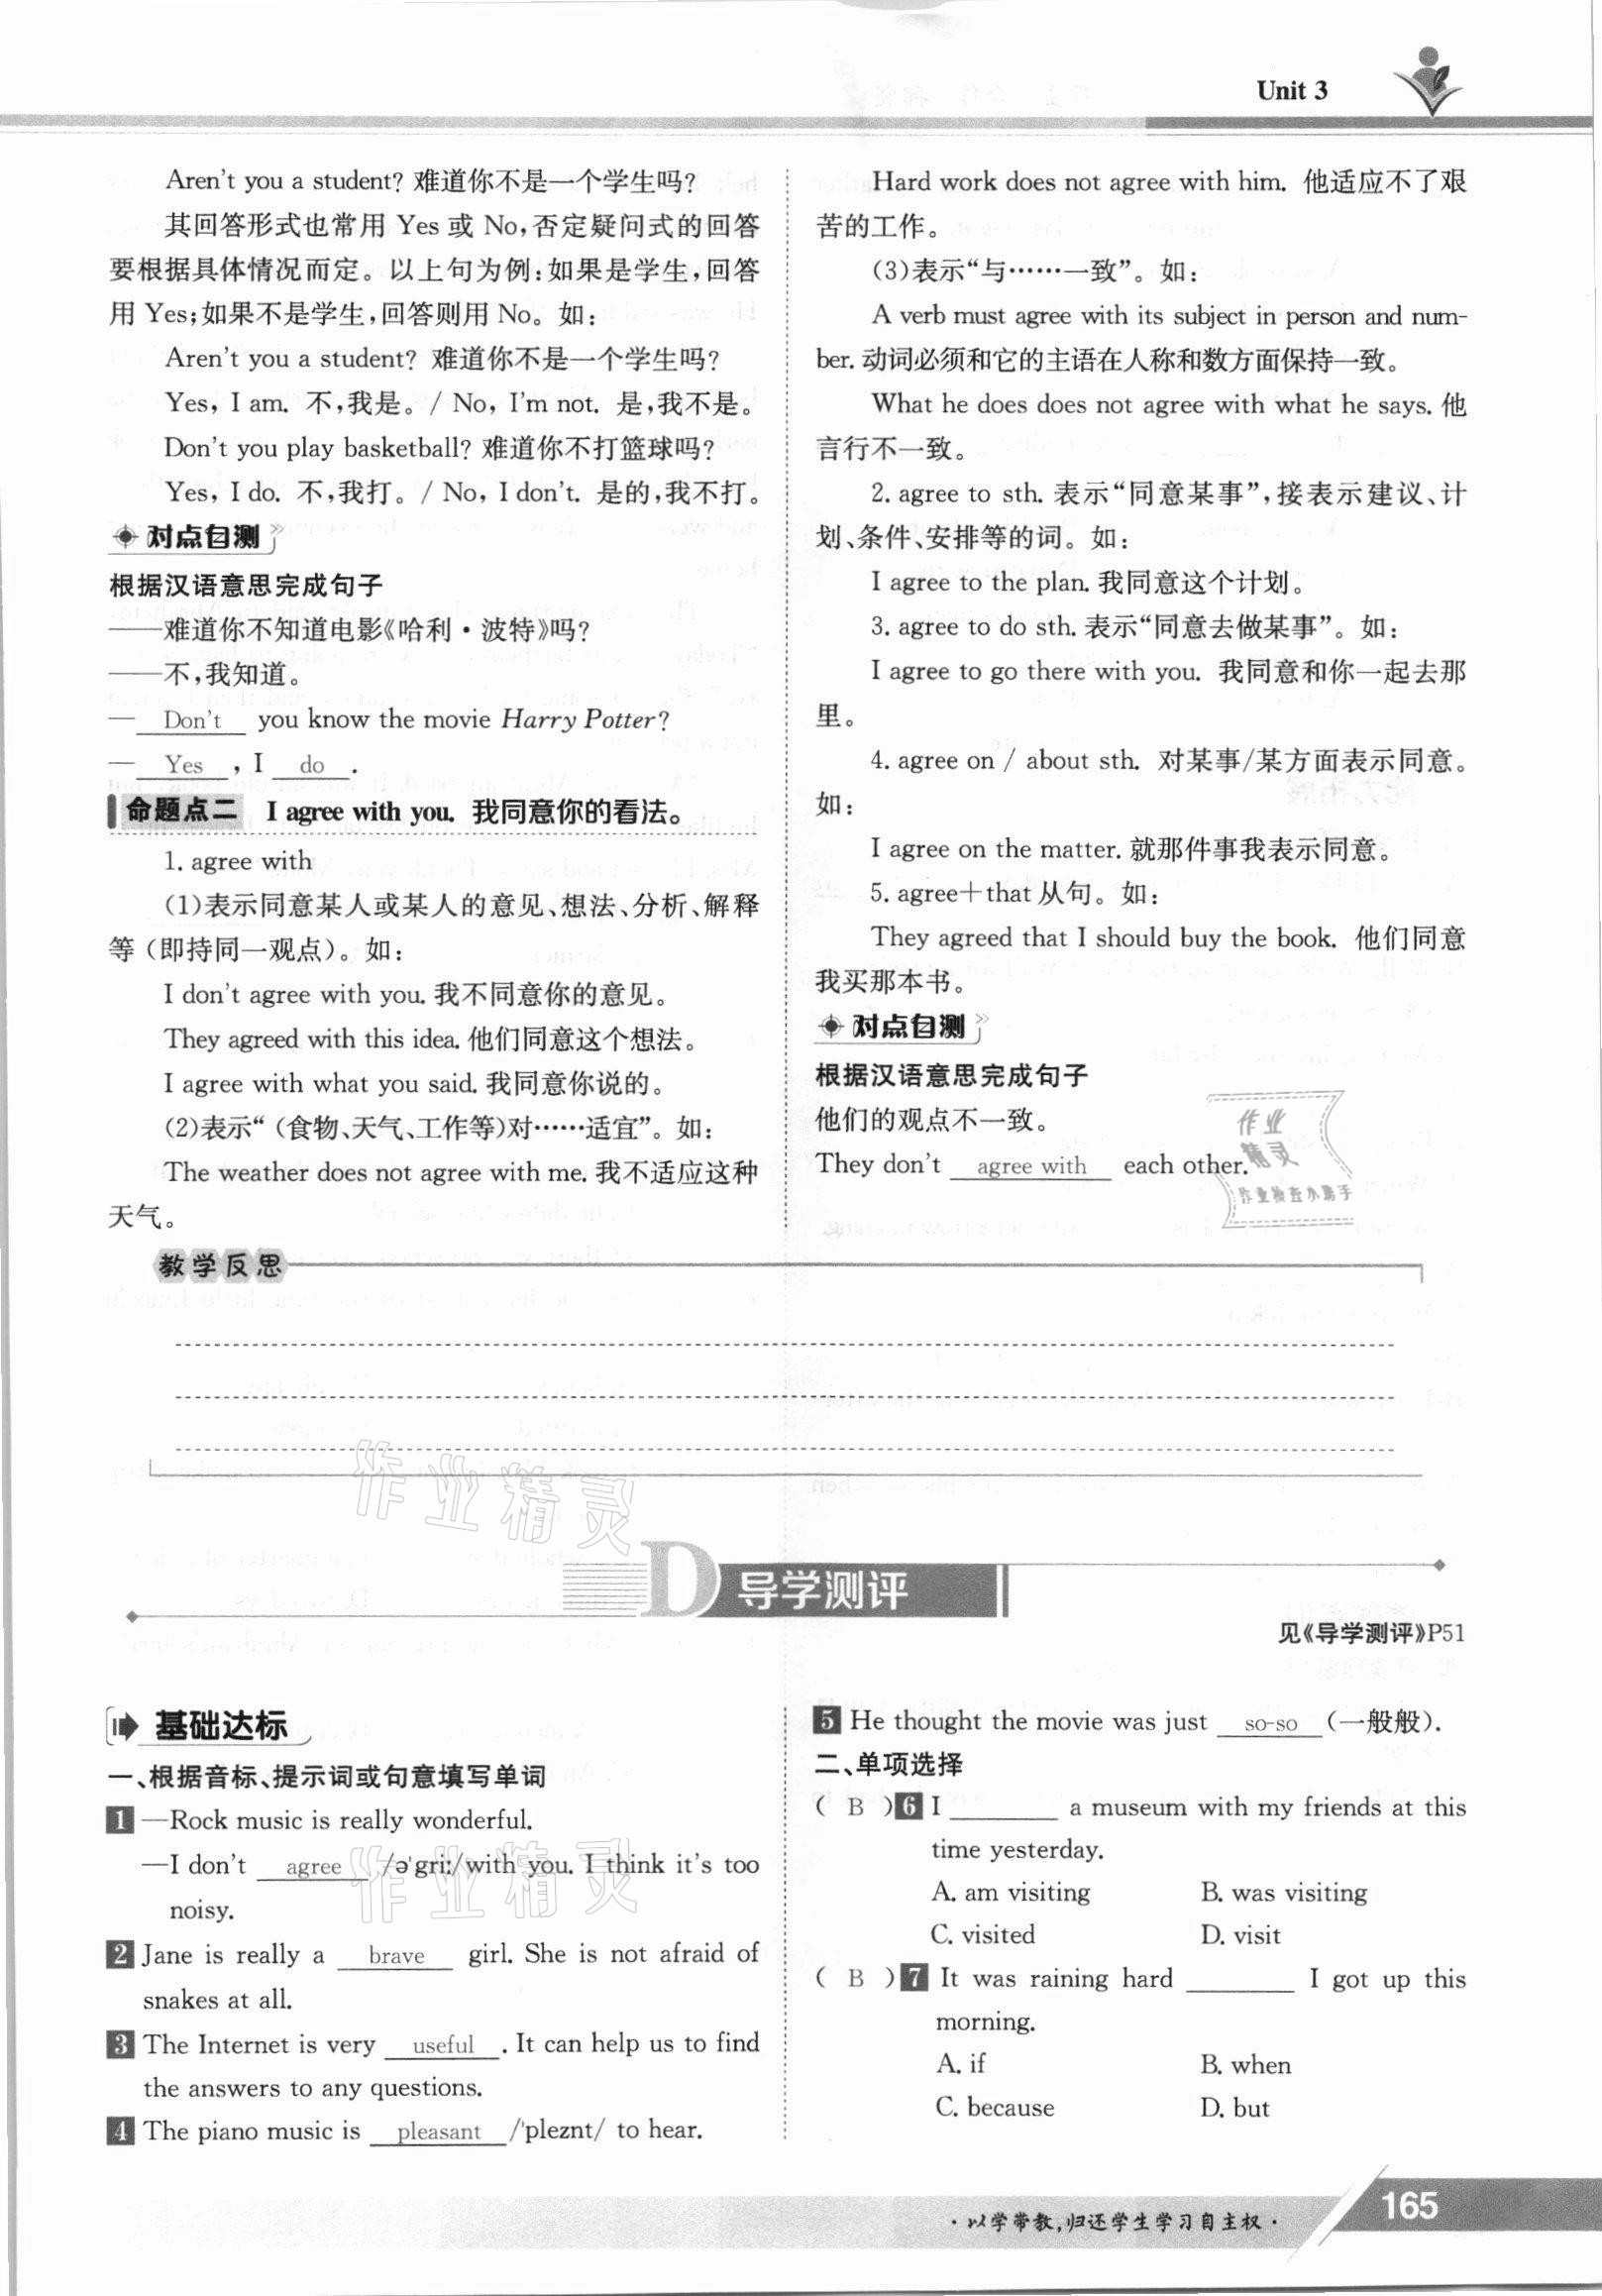 Unit 3
Aren't you a student? 难道你不是一个学生吗?
其回答形式也常用 Yes 或 No,否定疑问式的回答
要根据具体情况而定。以上句为例:如果是学生,回答
用 Yes;如果不是学生,回答则用 No。如:
Aren't you a student? 难道你不是一个学生吗?
Yes, I am. 不,我是。/ No, I'm not. 是,我不是。
Don't you play basketball? 难道你不打篮球吗?
Yes, I do. 不,我打。/ No, I don't. 是的,我不打。
对点自测
根据汉语意思完成句子
——难道你不知道电影《哈利·波特》吗?
——不,我知道。
— Don't you know the movie Harry Potter?
— Yes , I do .
命题点二 I agree with you. 我同意你的看法。
1. agree with
(1)表示同意某人或某人的意见、想法、分析、解释
等(即持同一观点)。如:
I don't agree with you. 我不同意你的意见。
They agreed with this idea. 他们同意这个想法。
I agree with what you said. 我同意你说的。
(2)表示“(食物、天气、工作等)对……适宜”。如:
The weather does not agree with me. 我不适应这种
天气。
Hard work does not agree with him. 他适应不了艰
苦的工作。
(3)表示“与……一致”。如:
A verb must agree with its subject in person and num-
ber. 动词必须和它的主语在人称和数方面保持一致。
What he does does not agree with what he says. 他
言行不一致。
2. agree to sth. 表示“同意某事”,接表示建议、计
划、条件、安排等的词。如:
I agree to the plan. 我同意这个计划。
3. agree to do sth. 表示“同意去做某事”。如:
I agree to go there with you. 我同意和你一起去那
里。
4. agree on / about sth. 对某事/某方面表示同意。
如:
I agree on the matter. 就那件事我表示同意。
5. agree+that 从句。如:
They agreed that I should buy the book. 他们同意
我买那本书。
对点自测
根据汉语意思完成句子
他们的观点不一致。
They don't agree with each other.
作业
精灵
作业检查小助手
教学反思
作业精灵
D 导学测评
见《导学测评》P51
基础达标
一、根据音标、提示词或句意填写单词
1 —Rock music is really wonderful.
—I don't agree /ə'griː/with you. I think it's too
noisy.
作业精灵
2 Jane is really a brave girl. She is not afraid of
snakes at all.
3 The Internet is very useful . It can help us to find
the answers to any questions.
4 The piano music is pleasant /'pleznt/ to hear.
5 He thought the movie was just so-so (一般般).
二、单项选择
( B )6 I ________ a museum with my friends at this
time yesterday.
A. am visiting B. was visiting
C. visited D. visit
( B )7 It was raining hard ________ I got up this
morning.
A. if B. when
C. because D. but
·以学带教,归还学生学习自主权·
165